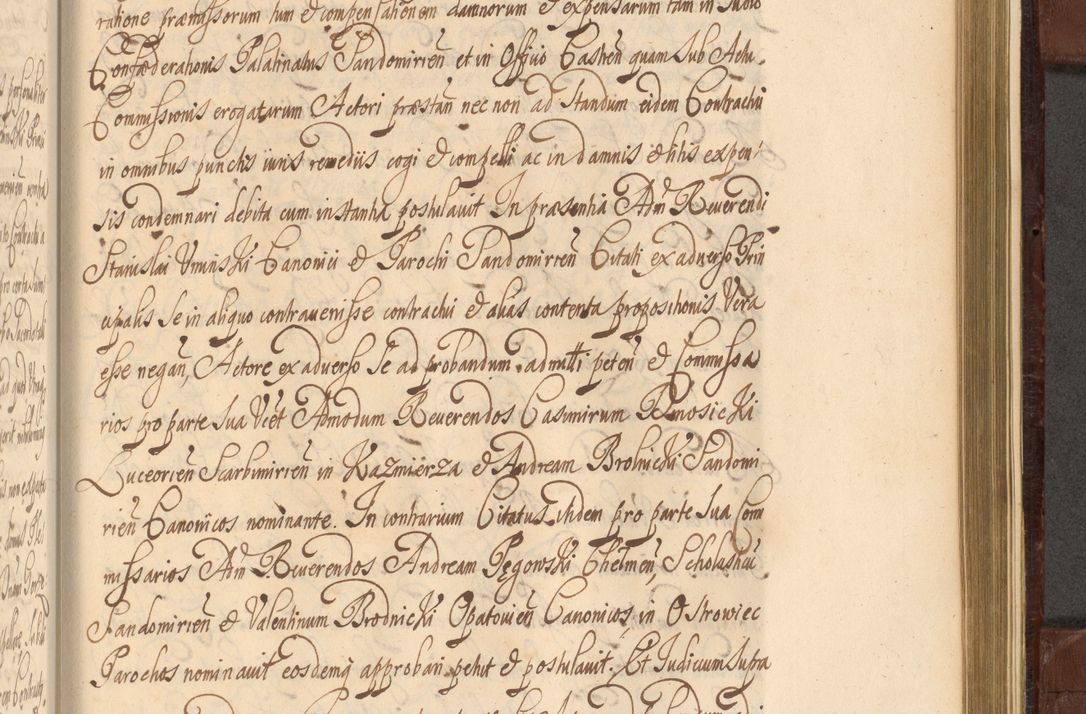 ratione præmissorum tum et compensationem damnorum et expensarum tam in Iudio
Confæderationis Palatinatus Sandomirien̄ et in Officio Castren̄ quam sub Actu
Commissionis erogatarum Actori præstan̄ nec non ad standum eidem Contractui
in omnibus punctis iuris remediis cogi et compelli ac in damnis et litis expen-
sis condemnari debita cum instantia postulavit In præsentia Adm̄ Reuerendi
Stanislai Uminski Canonici et Parochi Sandomirien̄ Citati ex adverso Prin
cipalis se in aliquo contravenisse contractui et alias contenta propositionis Vera
esse negan̄, Actore ex adverso se ad probandum admitti peten̄ et Commissa
rios pro parte sua Vcet Admodum Reuerendos Casimirum Rmosicki
Luceorien̄ Scarbimirien̄ in Kazmierza et Andream Brolnicki Sandomi
rien̄ Canonicos nominante. In contrarium Citatus itidem pro parte sua Com
missarios Adm̄ Reuerendos Andream Pęgowski Chelmen̄, Scholastic̄
Sandomirien̄ et Valentinum Brodnicki Opatovien̄ Canonicos, in Ostrowiec
Parochos nominavit eosdemq approbari petiit et postulavit. Et Iudicium supra